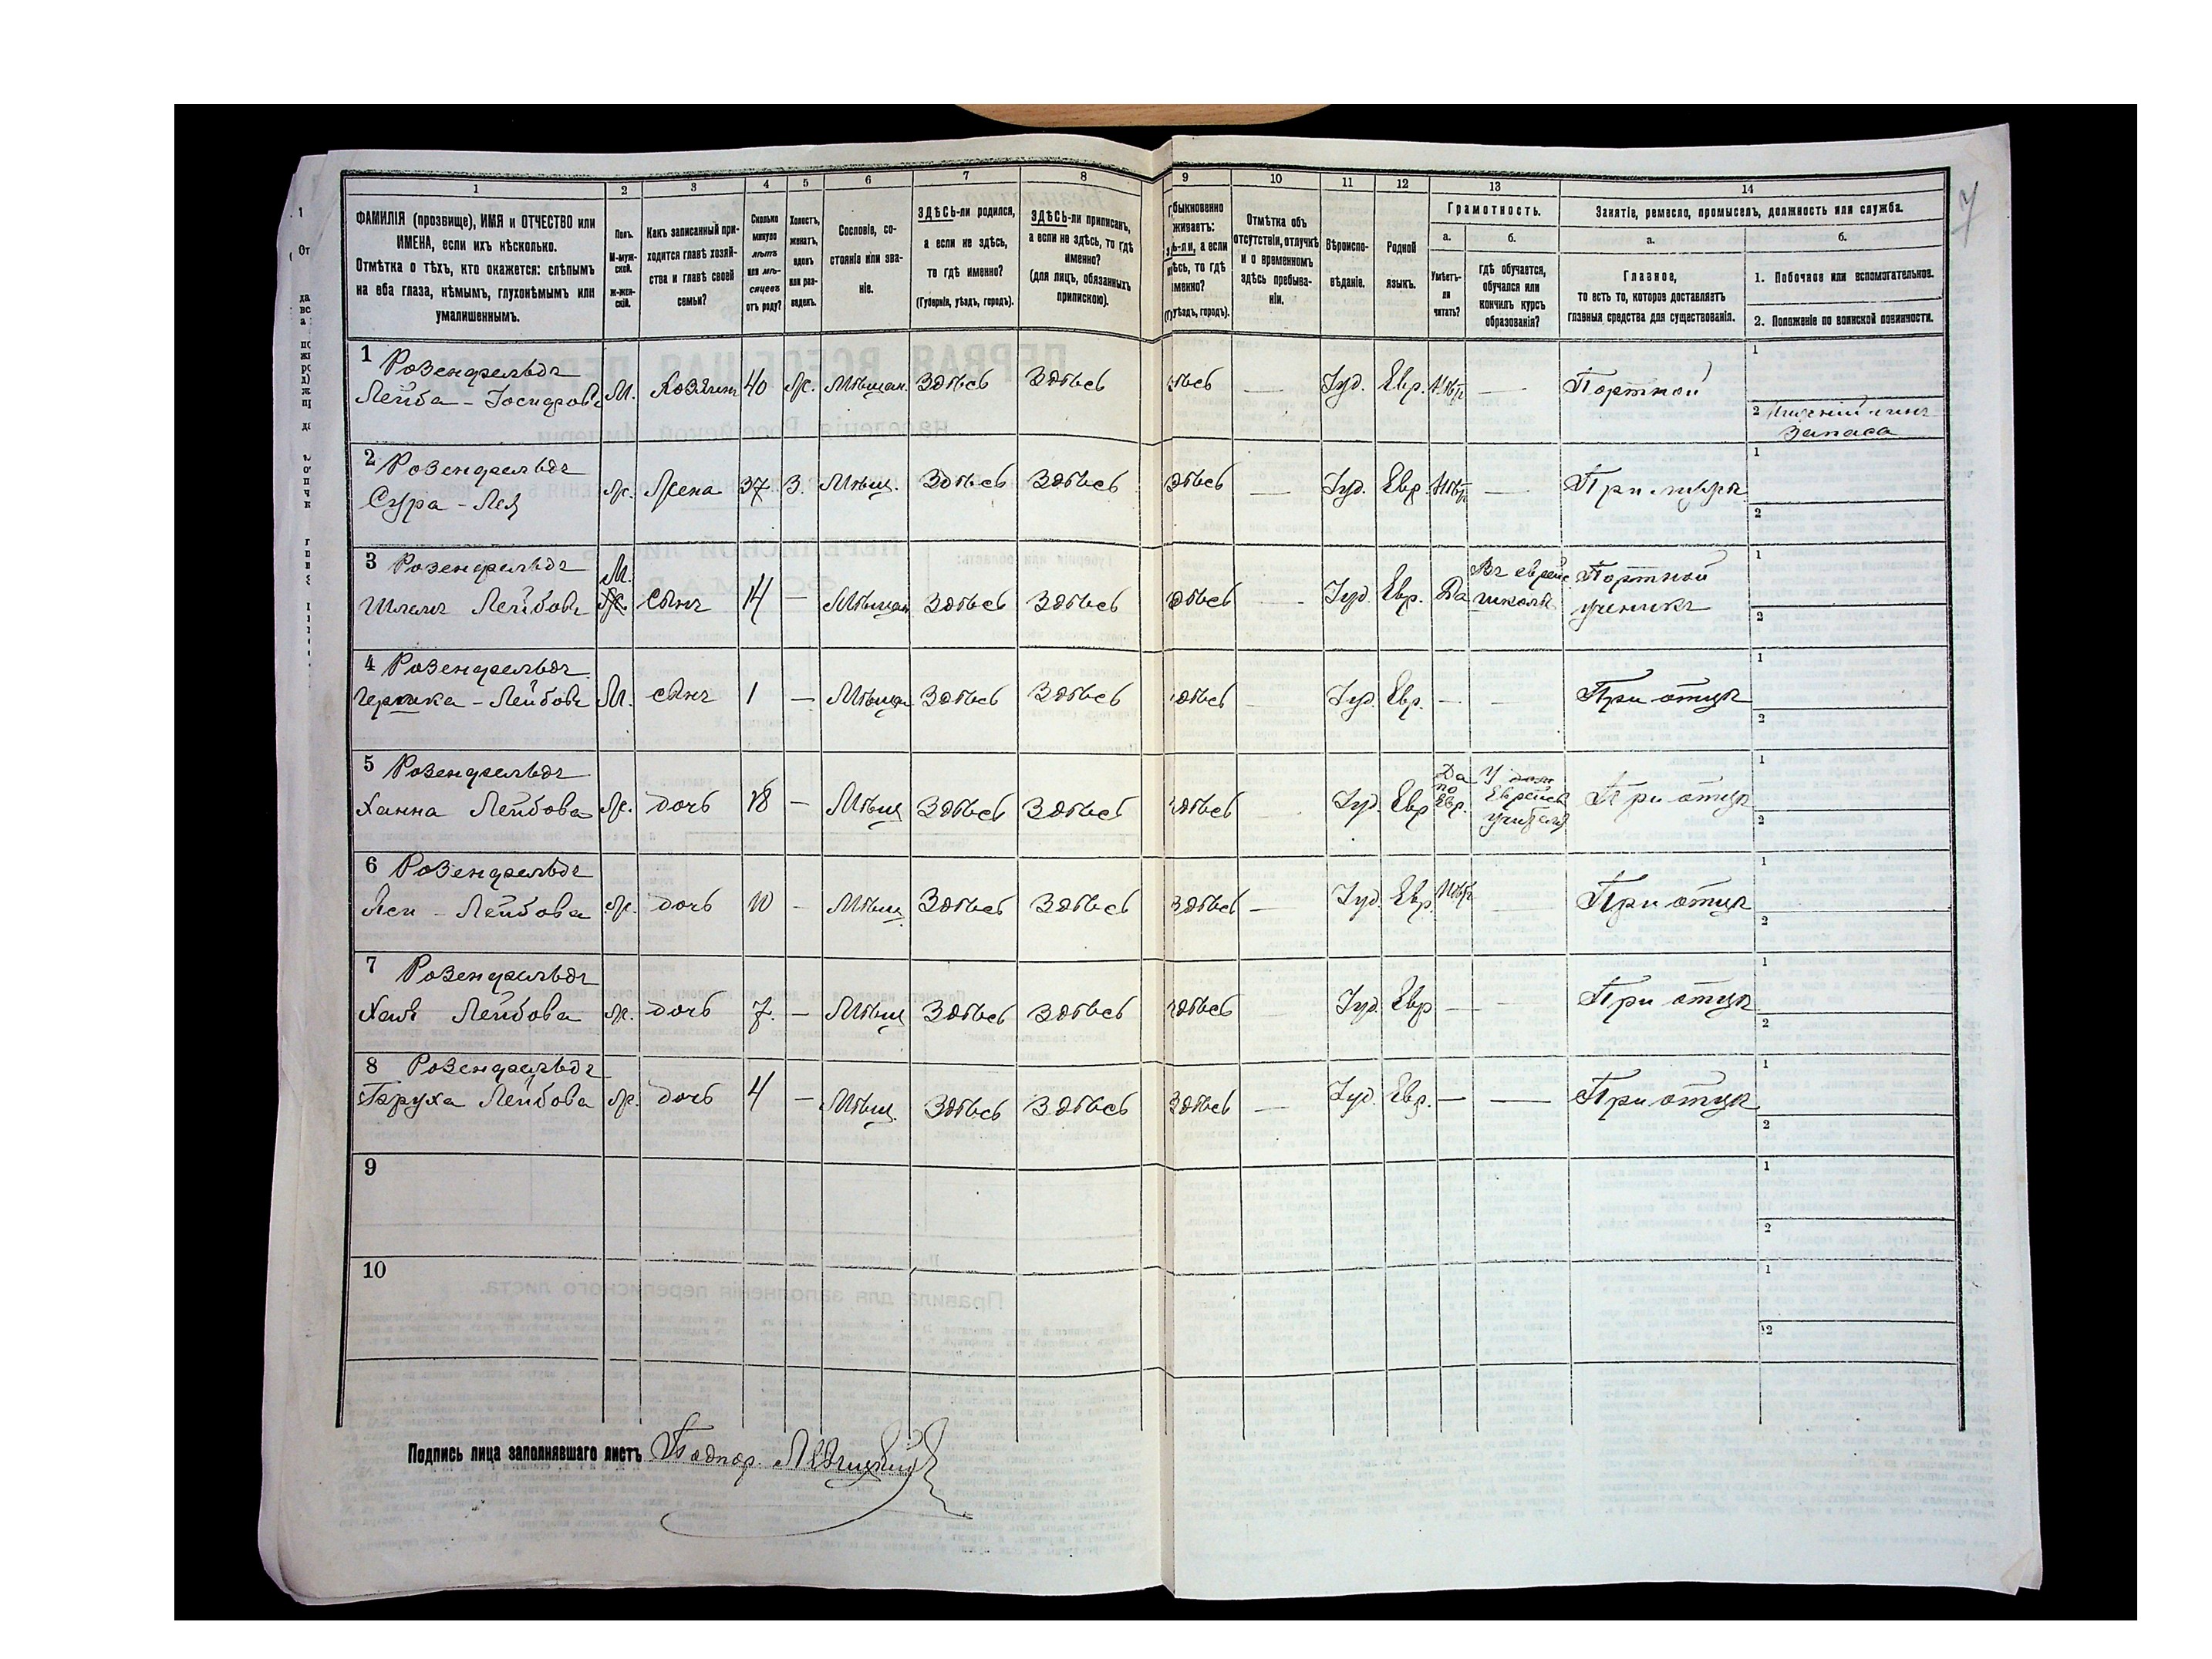 1 2 3 4 5 6 7 8 9 10 11 12 13 14
ФАМИЛІЯ (прозвище), ИМЯ и ОТЧЕСТВО или
ИМЕНА, если ихъ нѣсколько.
Отмѣтка о тѣхъ, кто окажется: слѣпымъ
на оба глаза, нѣмымъ, глухонѣмымъ или
умалишеннымъ.
Полъ.
М-муж-
ской.
Ж-жен-
скій.
Какъ записанный при-
ходится главѣ хозяй-
ства и главѣ своей
семьи?
Сколько
минуло
лѣтъ
или мѣ-
сяцевъ
отъ роду?
Холостъ,
женатъ,
вдовъ
или раз-
веденъ.
Сословіе, со-
стояніе или зва-
ніе.
ЗДѢСЬ-ли родился,
а если не здѣсь,
то гдѣ именно?
(Губернія, уѣздъ, городъ).
ЗДѢСЬ-ли приписанъ,
а если не здѣсь, то гдѣ
именно?
(для лицъ, обязанныхъ
припискою).
быкновенно
живаетъ:
ь-ли, а если
здѣсь, то гдѣ
именно?
уѣздъ, городъ).
Отмѣтка объ
отсутствіи, отлучкѣ
и о временномъ
здѣсь пребыва-
ніи.
Вѣроиспо-
вѣданіе.
Родной
языкъ.
Грамотность.
а.
Умѣетъ-
ли
читать?
б.
гдѣ обучается,
обучался или
кончилъ курсъ
образованія?
Занятіе, ремесло, промыселъ, должность или служба.
а.
Главное,
то есть то, которое доставляетъ
главныя средства для существованія.
б.
1. Побочное или вспомогательное.
2. Положеніе по воинской повинности.
1 Розенфельдъ
Лейба - М. Хозяинъ 40 Ж. Мѣщан. Здѣсь Здѣсь — Іуд. Евр. Нѣтъ — Портной
1
2 чинъ
запаса
2 Розенфельдъ
Сура - Лея Ж. Жена 37 З. Мѣщ. Здѣсь Здѣсь Здѣсь — Іуд. Евр. Нѣтъ — При мужѣ
1
2
3 Розенфельдъ
Лейбовъ М. Ж. Сынъ 14 — Мѣщан Здѣсь Здѣсь Здѣсь — Іуд. Евр. Да Въ еврейс. школѣ Портной
ученикъ
1
2
4 Розенфельдъ
Лейбовъ М. сынъ 1 — Мѣщан Здѣсь Здѣсь здѣсь Іуд. Евр. — — При отцѣ
1
2
5 Розенфельдъ
Ханна Лейбова Ж. дочь 18 — Мѣщ Здѣсь Здѣсь здѣсь — Іуд. Евр Да по Евр. У Еврейск учителя При отцѣ
1
2
6 Розенфельдъ
Лейбова Ж. дочь 10 — Мѣщ. Здѣсь Здѣсь Здѣсь — Іуд. Евр. Нѣтъ — При отцѣ
1
2
7 Розенфельдъ
Хая Лейбова Ж. дочь 7. — Мѣщ Здѣсь Здѣсь здѣсь Іуд. Евр — — При отцѣ
1
2
8 Розенфельдъ
Бруха Лейбова Ж. дочь 4 — Мѣщ. Здѣсь Здѣсь Здѣсь — Іуд. Евр. — — При отцѣ
1
2
9
1
2
10
1
2
Подпись лица заполнявшаго листъ
7